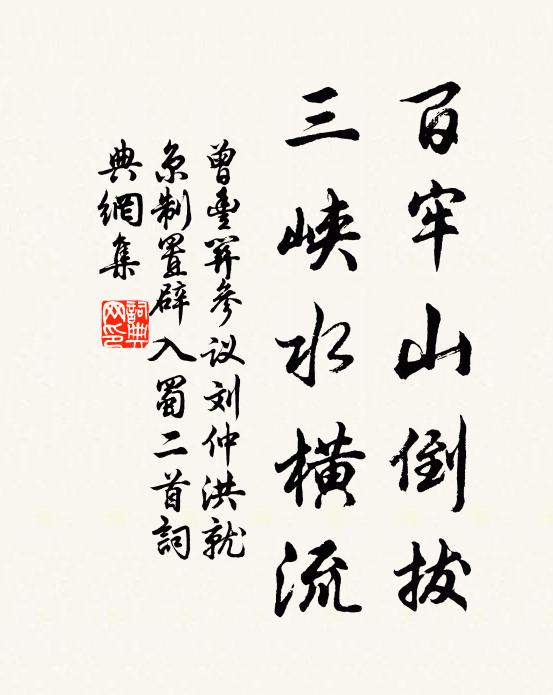 百牢山倒拔
三峡水横流
曾豐参议刘仲洪就
京制置辟入蜀二首詞
典網集
詞典
网印